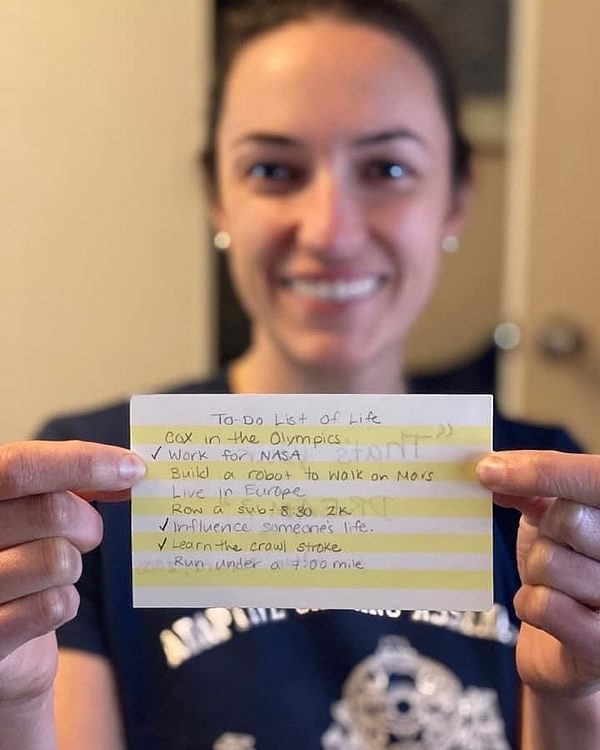 To-Do List of Life
Cox in the Olympics
✓ Work for NASA
Build a robot to walk on Mars
Live in Europe
Row a sub-8:30 2K
✓ Influence someone's life.
✓ Learn the crawl stroke
Run under a 7:00 mile